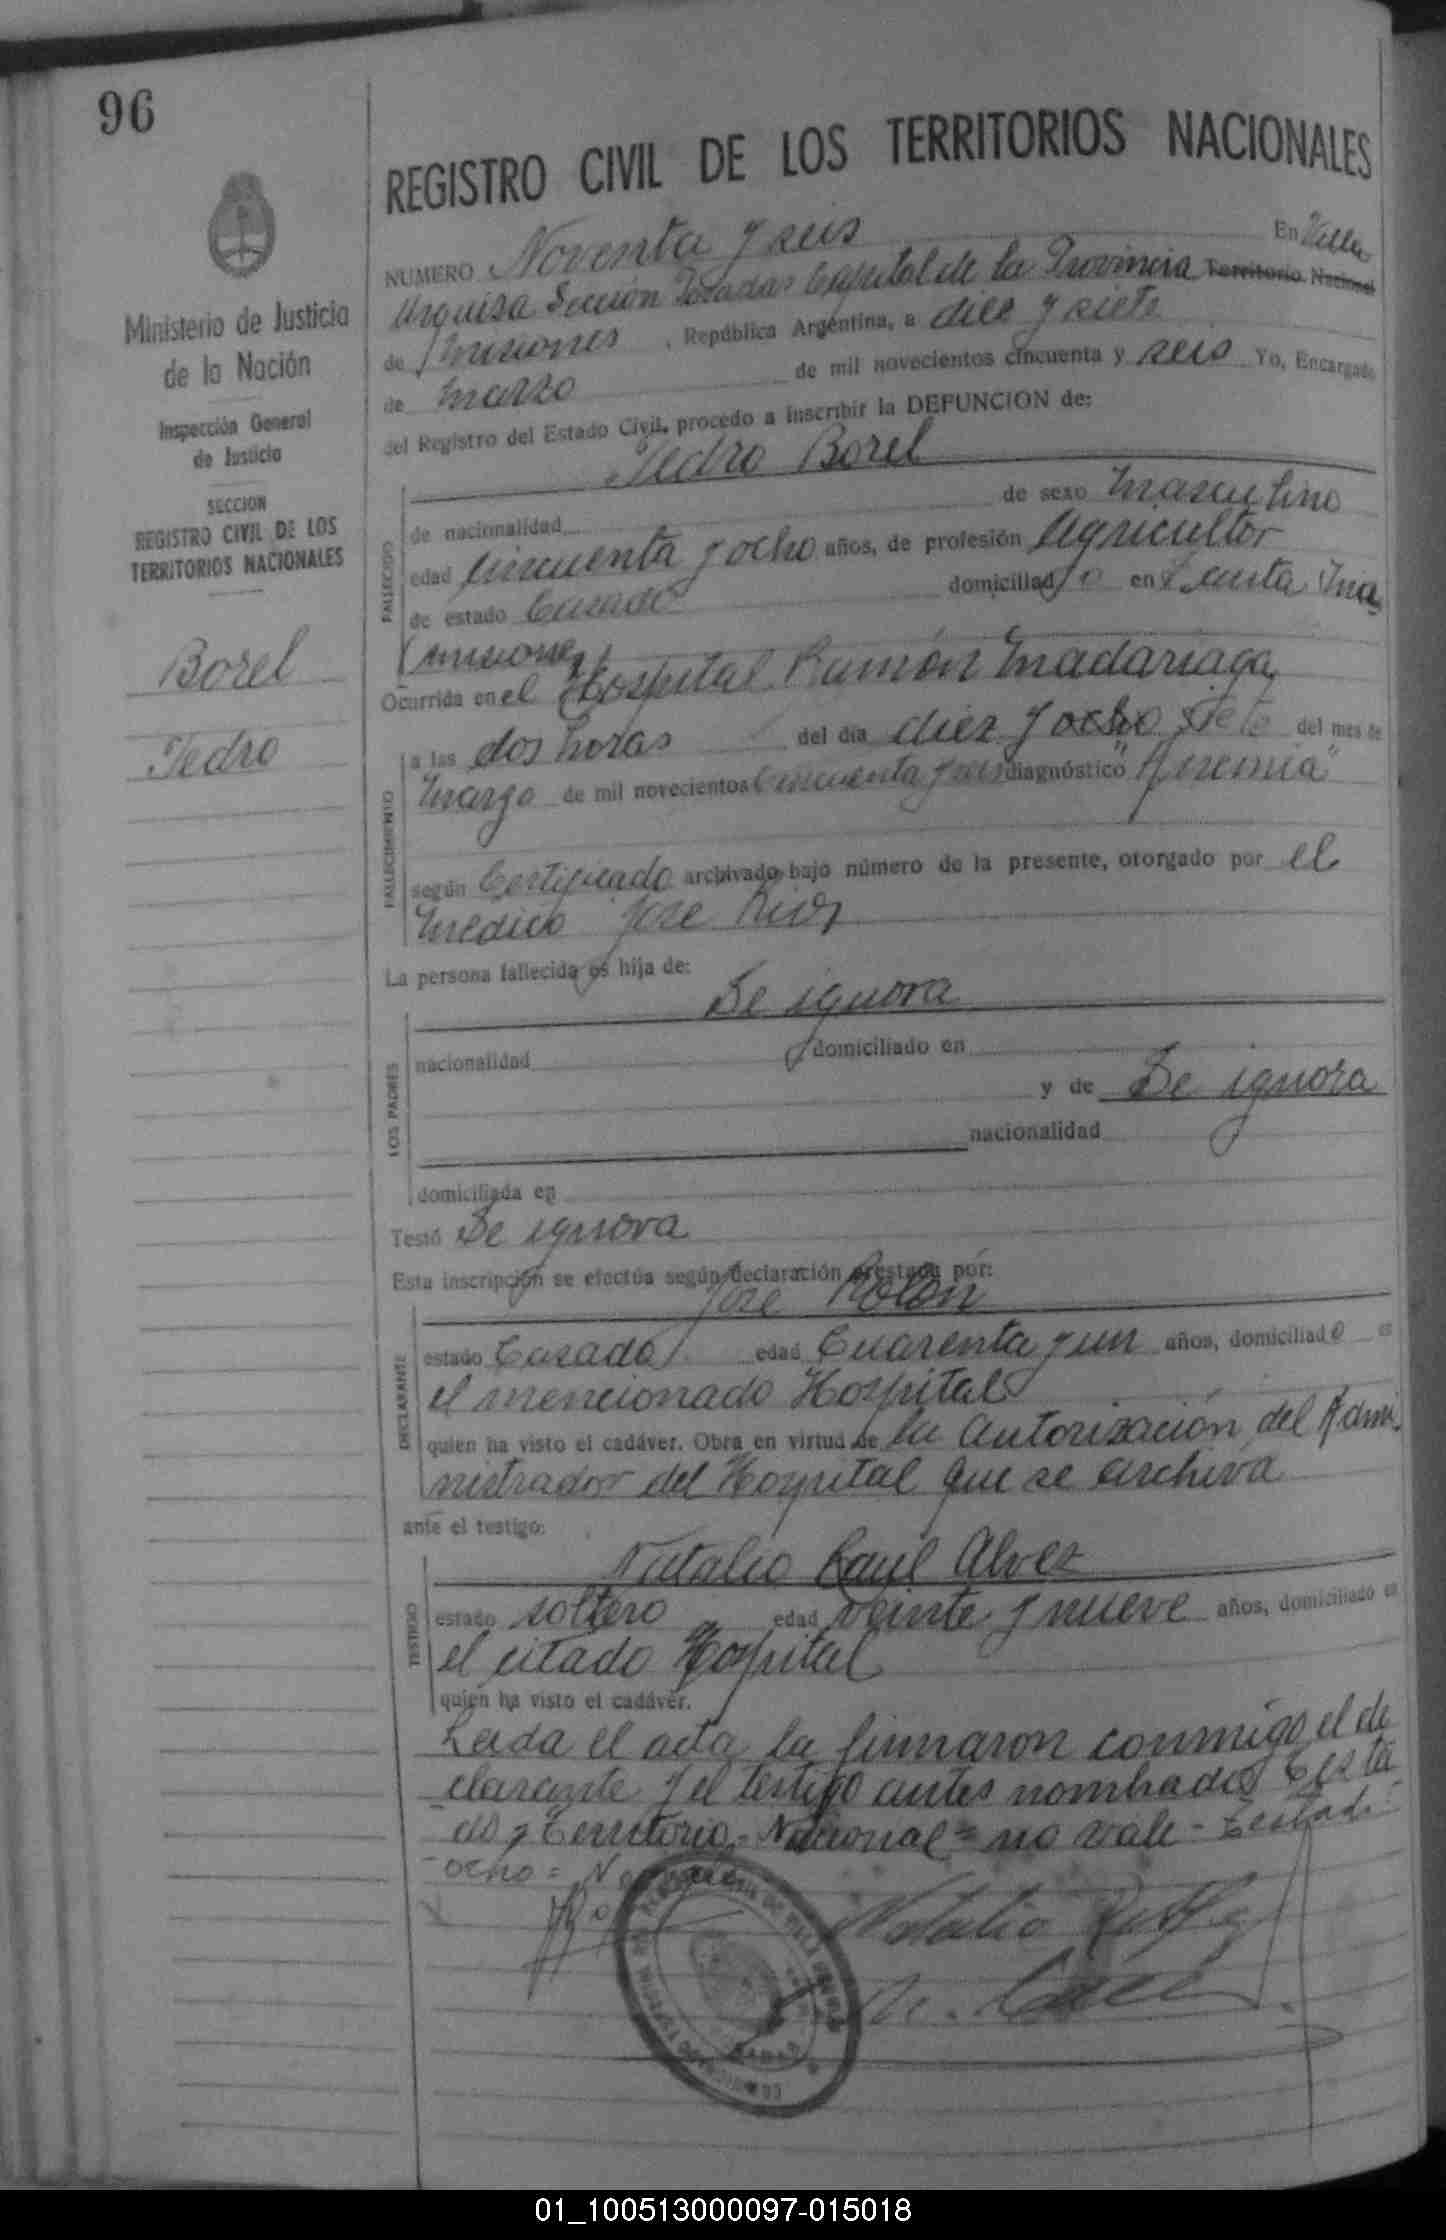 96
REGISTRO CIVIL DE LOS TERRITORIOS NACIONALES
Ministerio de Justicia
de la Nación
Inspección General
de Justicia
SECCION
REGISTRO CIVIL DE LOS
TERRITORIOS NACIONALES
Borel
Pedro
NUMERO Noventa y seis En Villa
Urquiza Sección Posadas Capital de la Provincia Territorio Nacional
de Misiones, República Argentina, a diez y siete
de marzo de mil novecientos cincuenta y seis Yo, Encargado
del Registro del Estado Civil, procedo a inscribir la DEFUNCION de:
Pedro Borel
FALLECIDO
de nacionalidad de sexo masculino
edad cincuenta y ocho años, de profesión Agricultor
de estado Casado domiciliado en Santa
(Misiones)
Ocurrida en el Hospital Ramón Madariaga,
FALLECIMIENTO
a las dos horas del día diez y ocho siete del mes de
Marzo de mil novecientos Cincuenta y seis diagnóstico "Anemia"
según Certificado archivado bajo número de la presente, otorgado por el
medico Jose
La persona fallecida es hija de:
Se ignora
LOS PADRES
nacionalidad domiciliado en
y de Se ignora
nacionalidad
domiciliada en
Testó Se ignora
Esta inscripción se efectúa según declaración prestada por:
Jose Rolon
DECLARANTE
estado Casado edad Cuarenta y un años, domiciliado en
el mencionado Hospital
quien ha visto el cadáver. Obra en virtud de la autorización del Admi-
nistrador del Hospital que se archiva
ante el testigo:
Natalio Raul Alvez
TESTIGO
estado soltero edad veinte y nueve años, domiciliado en
el citado Hospital
quien ha visto el cadáver.
Leida el acta la firmaron conmigo el de
clarante y el testigo antes nombrados Testa
do = Territorio = Nacional = no vale - Testado:
ocho =
Natalio
01_100513000097-015018